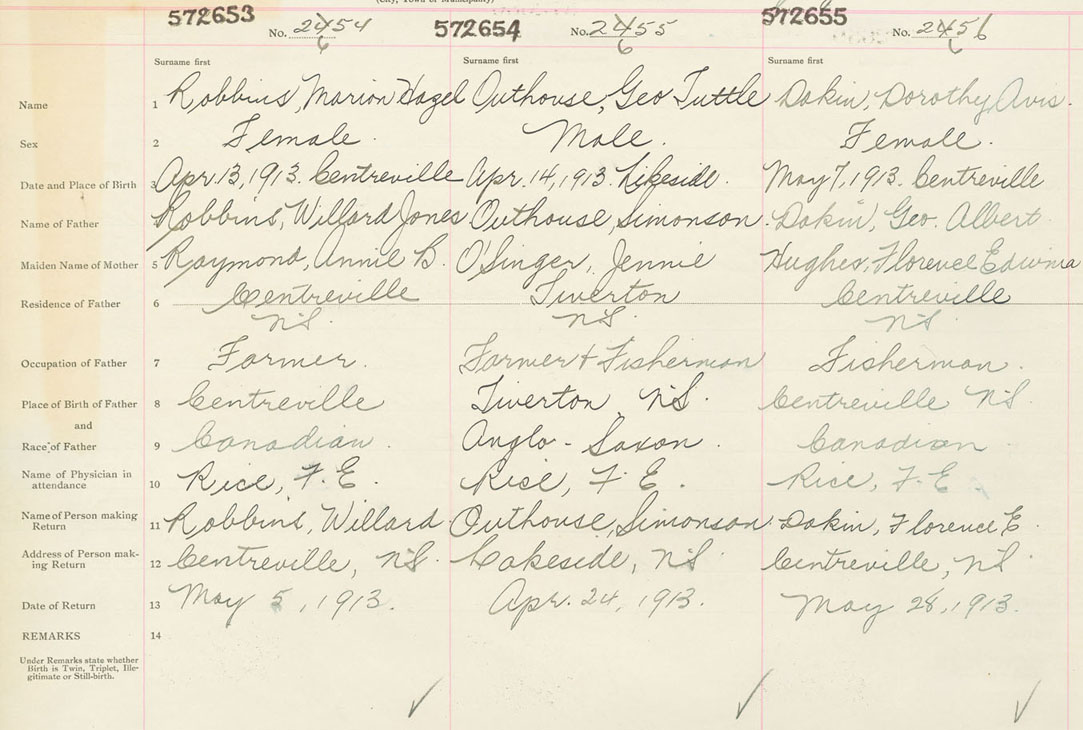 (City, Town or Municipality)
572653 No. 2454 6 572654 No. 2455 6 572655 No. 2456 6
Surname first Surname first Surname first
Name 1 Robbins, Marion Hazel Outhouse, Geo Tuttle Dakin, Dorothy Avis.
Sex 2 Female. Male. Female.
Date and Place of Birth 3 Apr. 13, 1913. Centreville Apr. 14, 1913. Lakeside. May 7, 1913. Centreville
Name of Father Robbins, Willard Jones Outhouse, Simonson. Dakin, Geo. Albert
Maiden Name of Mother 5 Raymond, Annie B. O'Singer, Jennie Hughes, Florence Edwina
Residence of Father 6 Centreville Tiverton Centreville
NS. NS. NS
Occupation of Father 7 Farmer. Farmer + Fisherman Fisherman.
Place of Birth of Father 8 Centreville Tiverton, NS. Centreville NS.
and
Race of Father 9 Canadian. Anglo-Saxon. Canadian
Name of Physician in
attendance 10 Rice, F. E. Rice, F E. Rice, F. E
Name of Person making
Return 11 Robbins, Willard Outhouse, Simonson. Dakin, Florence E.
Address of Person mak-
ing Return 12 Centreville, NS. Lakeside, NS Centreville, NS
Date of Return 13 May 5, 1913. Apr. 24, 1913. May 28, 1913.
REMARKS 14
Under Remarks state whether
Birth is Twin, Triplet, Ille-
gitimate or Still-birth.